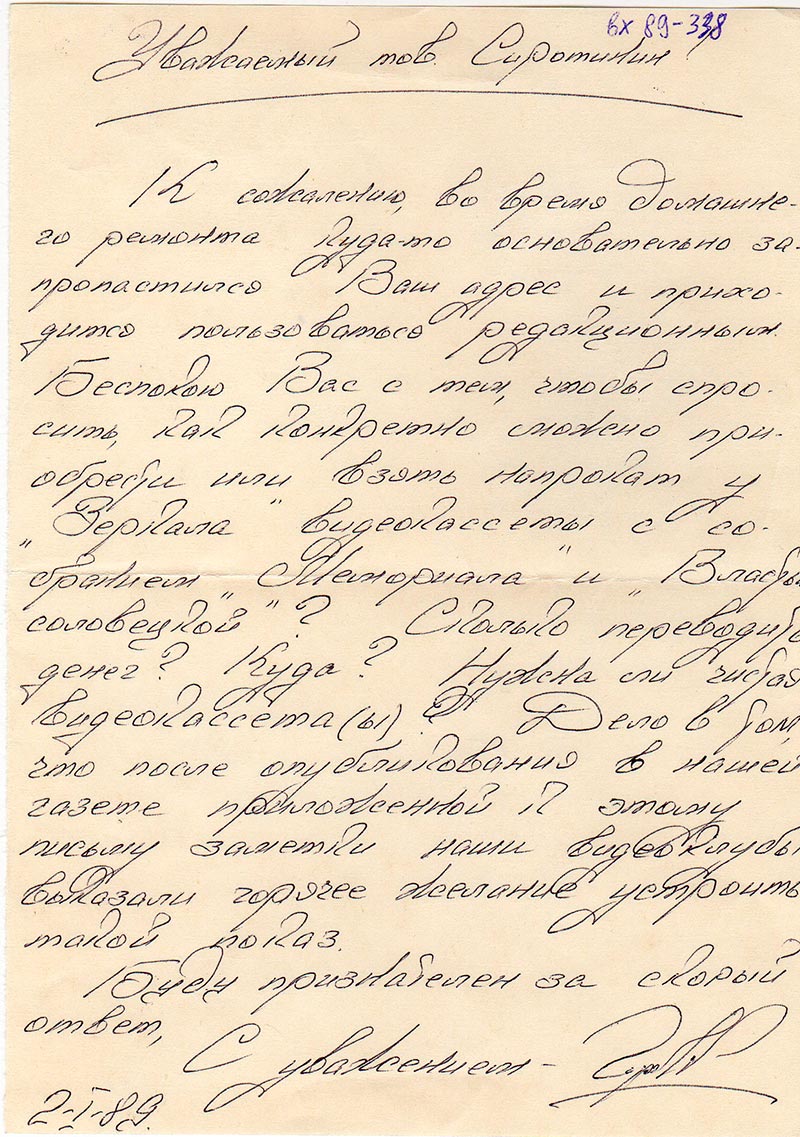 вх 89-338
Уважаемый тов. Сиротинин
К сожалению, во время домашне-
го ремонта куда-то основательно за-
пропастился Ваш адрес и прихо-
дится пользоваться редакционным.
Беспокою Вас с тем, чтобы спро-
сить, как конкретно можно при-
обрести или взять напрокат у
"Зеркала" видеокассеты с со-
бранием "Мемориала" и "Власть
соловецкой"? Сколько переводить
денег? Куда? Нужна ли чистая
видеокассета(ы)? Дело в том,
что после опубликования в нашей
газете приложенной к этому
письму заметки наши видеоклубы
высказали горячее желание устроить
такой показ.
Буду признателен за скорый
ответ,
С уважением –
2-I-89.